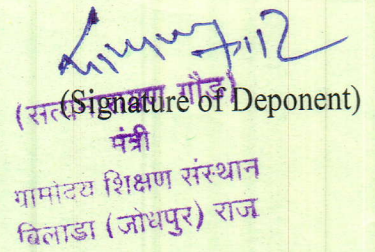 (Signature of Deponent)
गौड़)
मंत्री
शिक्षण संस्थान
बिलाडा (जोधपुर) राज